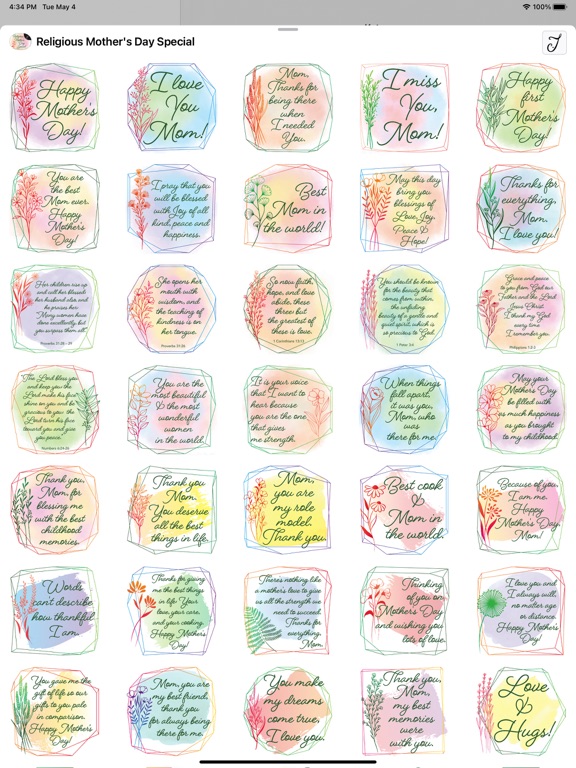 4:34 PM Tue May 4
100%
Religious Mother's Day Special
Happy
Mother's
Day!
I love
You
Mom!
Mom,
Thanks for
being there
when
I needed
You.
I miss
You,
Mom!
Happy
first
Mother's
Day!
You are
the best
Mom ever.
Happy
Mother's
Day!
I pray that you
will be blessed
with Joy of all
kind, peace and
happiness.
Best
Mom in
the world!
May this day
bring you
blessings of
Love, Joy,
Peace &
Hope!
Thanks for
everything,
Mom.
I love you!
Her children rise up
and call her blessed;
her husband also, and
he praises her:
Many women have
done excellently, but
you surpass them all.
Proverbs 31:28 - 29
She opens her
mouth with
wisdom, and
the teaching of
kindness is on
her tongue.
Proverbs 31:26
So now faith,
hope, and love
abide, these
three; but
the greatest of
these is love.
1 Corinthians 13:13
You should be known
for the beauty that
comes from within,
the unfading
beauty of a gentle and
quiet spirit, which is
so precious to God.
1 Peter 3:4
Grace and peace
to you from God our
Father and the Lord
Jesus Christ.
I thank my God
every time
I remember you.
Philippians 1:2-3
The Lord bless you
and keep you; the
Lord make his face
shine on you and be
gracious to you; the
Lord turn his face
toward you and give
you peace.
Numbers 6:24-26
You are the
most beautiful
& the most
wonderful
women
in the world.
It is your voice
that I want to
hear because
you are the one
that gives
me strength.
When things
fall apart,
it was you,
Mom, who
was
there for me.
May your
Mother's Day
be filled with
as much happiness
as you brought
to my childhood.
Thank you,
Mom, for
blessing me
with the best
childhood
memories.
Thank you
Mom.
You deserve
all the best
things in life.
Mom,
you are
my role
model.
Thank you.
Best cook
&
Mom in
the world.
Because of you,
I am me.
Happy
Mother's Day
Mom!
Words
can't describe
how thankful
I am.
Thanks for giving
me the best things
in life. Your
love, your care,
and your cooking.
Happy Mother's
Day!
There's nothing like
a mother's love to give
us all the strength we
need to succeed.
Thanks for
everything,
Mom.
Thinking
of you on
Mother's Day
and wishing you
lots of love.
I love you and
I always will,
no matter age
or distance.
Happy Mother's
Day!
You gave me the
gift of life so our
gifts to you pale
in comparison.
Happy Mother's
Day!
Mom, you are
my best friend,
thank you
for always being
there for me.
You make
my dreams
come true,
I love you.
Thank you,
Mom,
my best
memories
were
with you.
Love
&
Hugs!